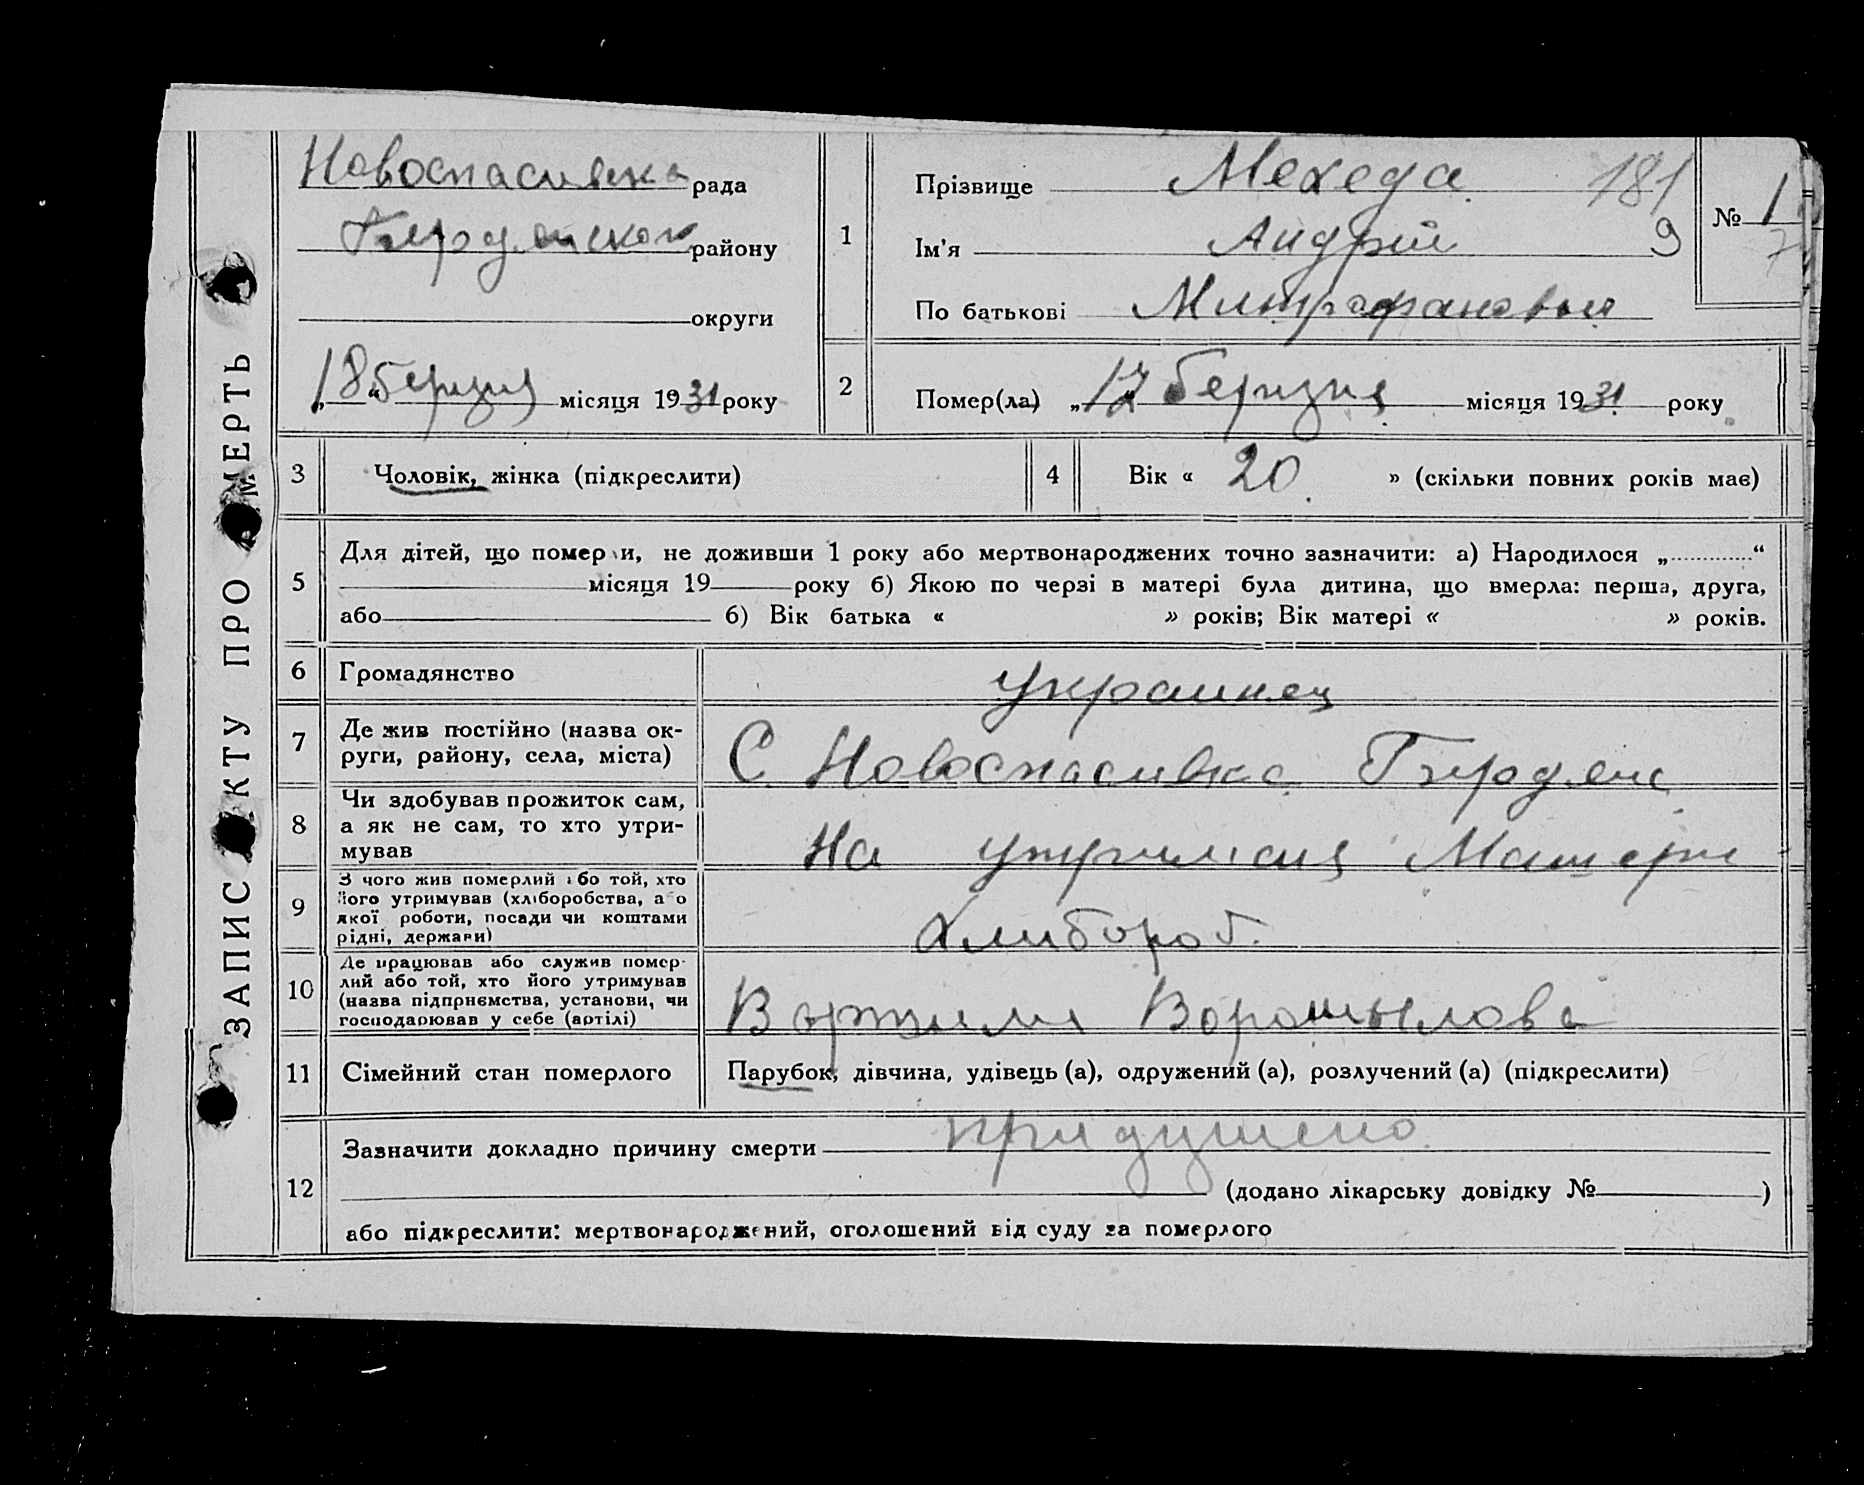 ЗАПИС АКТУ ПРО СМЕРТЬ
Новоспасивка рада
Бердянского району
округи
„18“ березня місяця 1931 року
1
Прізвище Мехеда 181
Ім'я Андрій 9
По батькові Митрофанович
№ 1
7
2
Помер(ла) „12“ березня місяця 1931 року
3 Чоловік, жінка (підкреслити)
4 Вік « 20 » (скільки повних років має)
5
Для дітей, що померли, не доживши 1 року або мертвонароджених точно зазначити: а) Народилося „ “
місяця 19 року б) Якою по черзі в матері була дитина, що вмерла: перша, друга,
або б) Вік батька « » років; Вік матері « » років.
6 Громадянство украинец
7 Де жив постійно (назва ок-
руги, району, села, міста)
С. Новоспасивка Бердянс
8 Чи здобував прожиток сам,
а як не сам, то хто утри-
мував
На утриманя Матери
9 З чого жив померлий або той, хто
його утримував (хліборобства, або
якої роботи, посади чи коштами
рідні, держави)
Хлибороб.
10 Де працював або служив помер-
лий або той, хто його утримував
(назва підприємства, установи, чи
господарював у себе (артілі)
В артили Ворошылова
11 Сімейний стан померлого
Парубок, дівчина, удівець (а), одружений (а), розлучений (а) (підкреслити)
12
Зазначити докладно причину смерти придушено
(додано лікарську довідку № )
або підкреслити: мертвонароджений, оголошений від суду за померлого